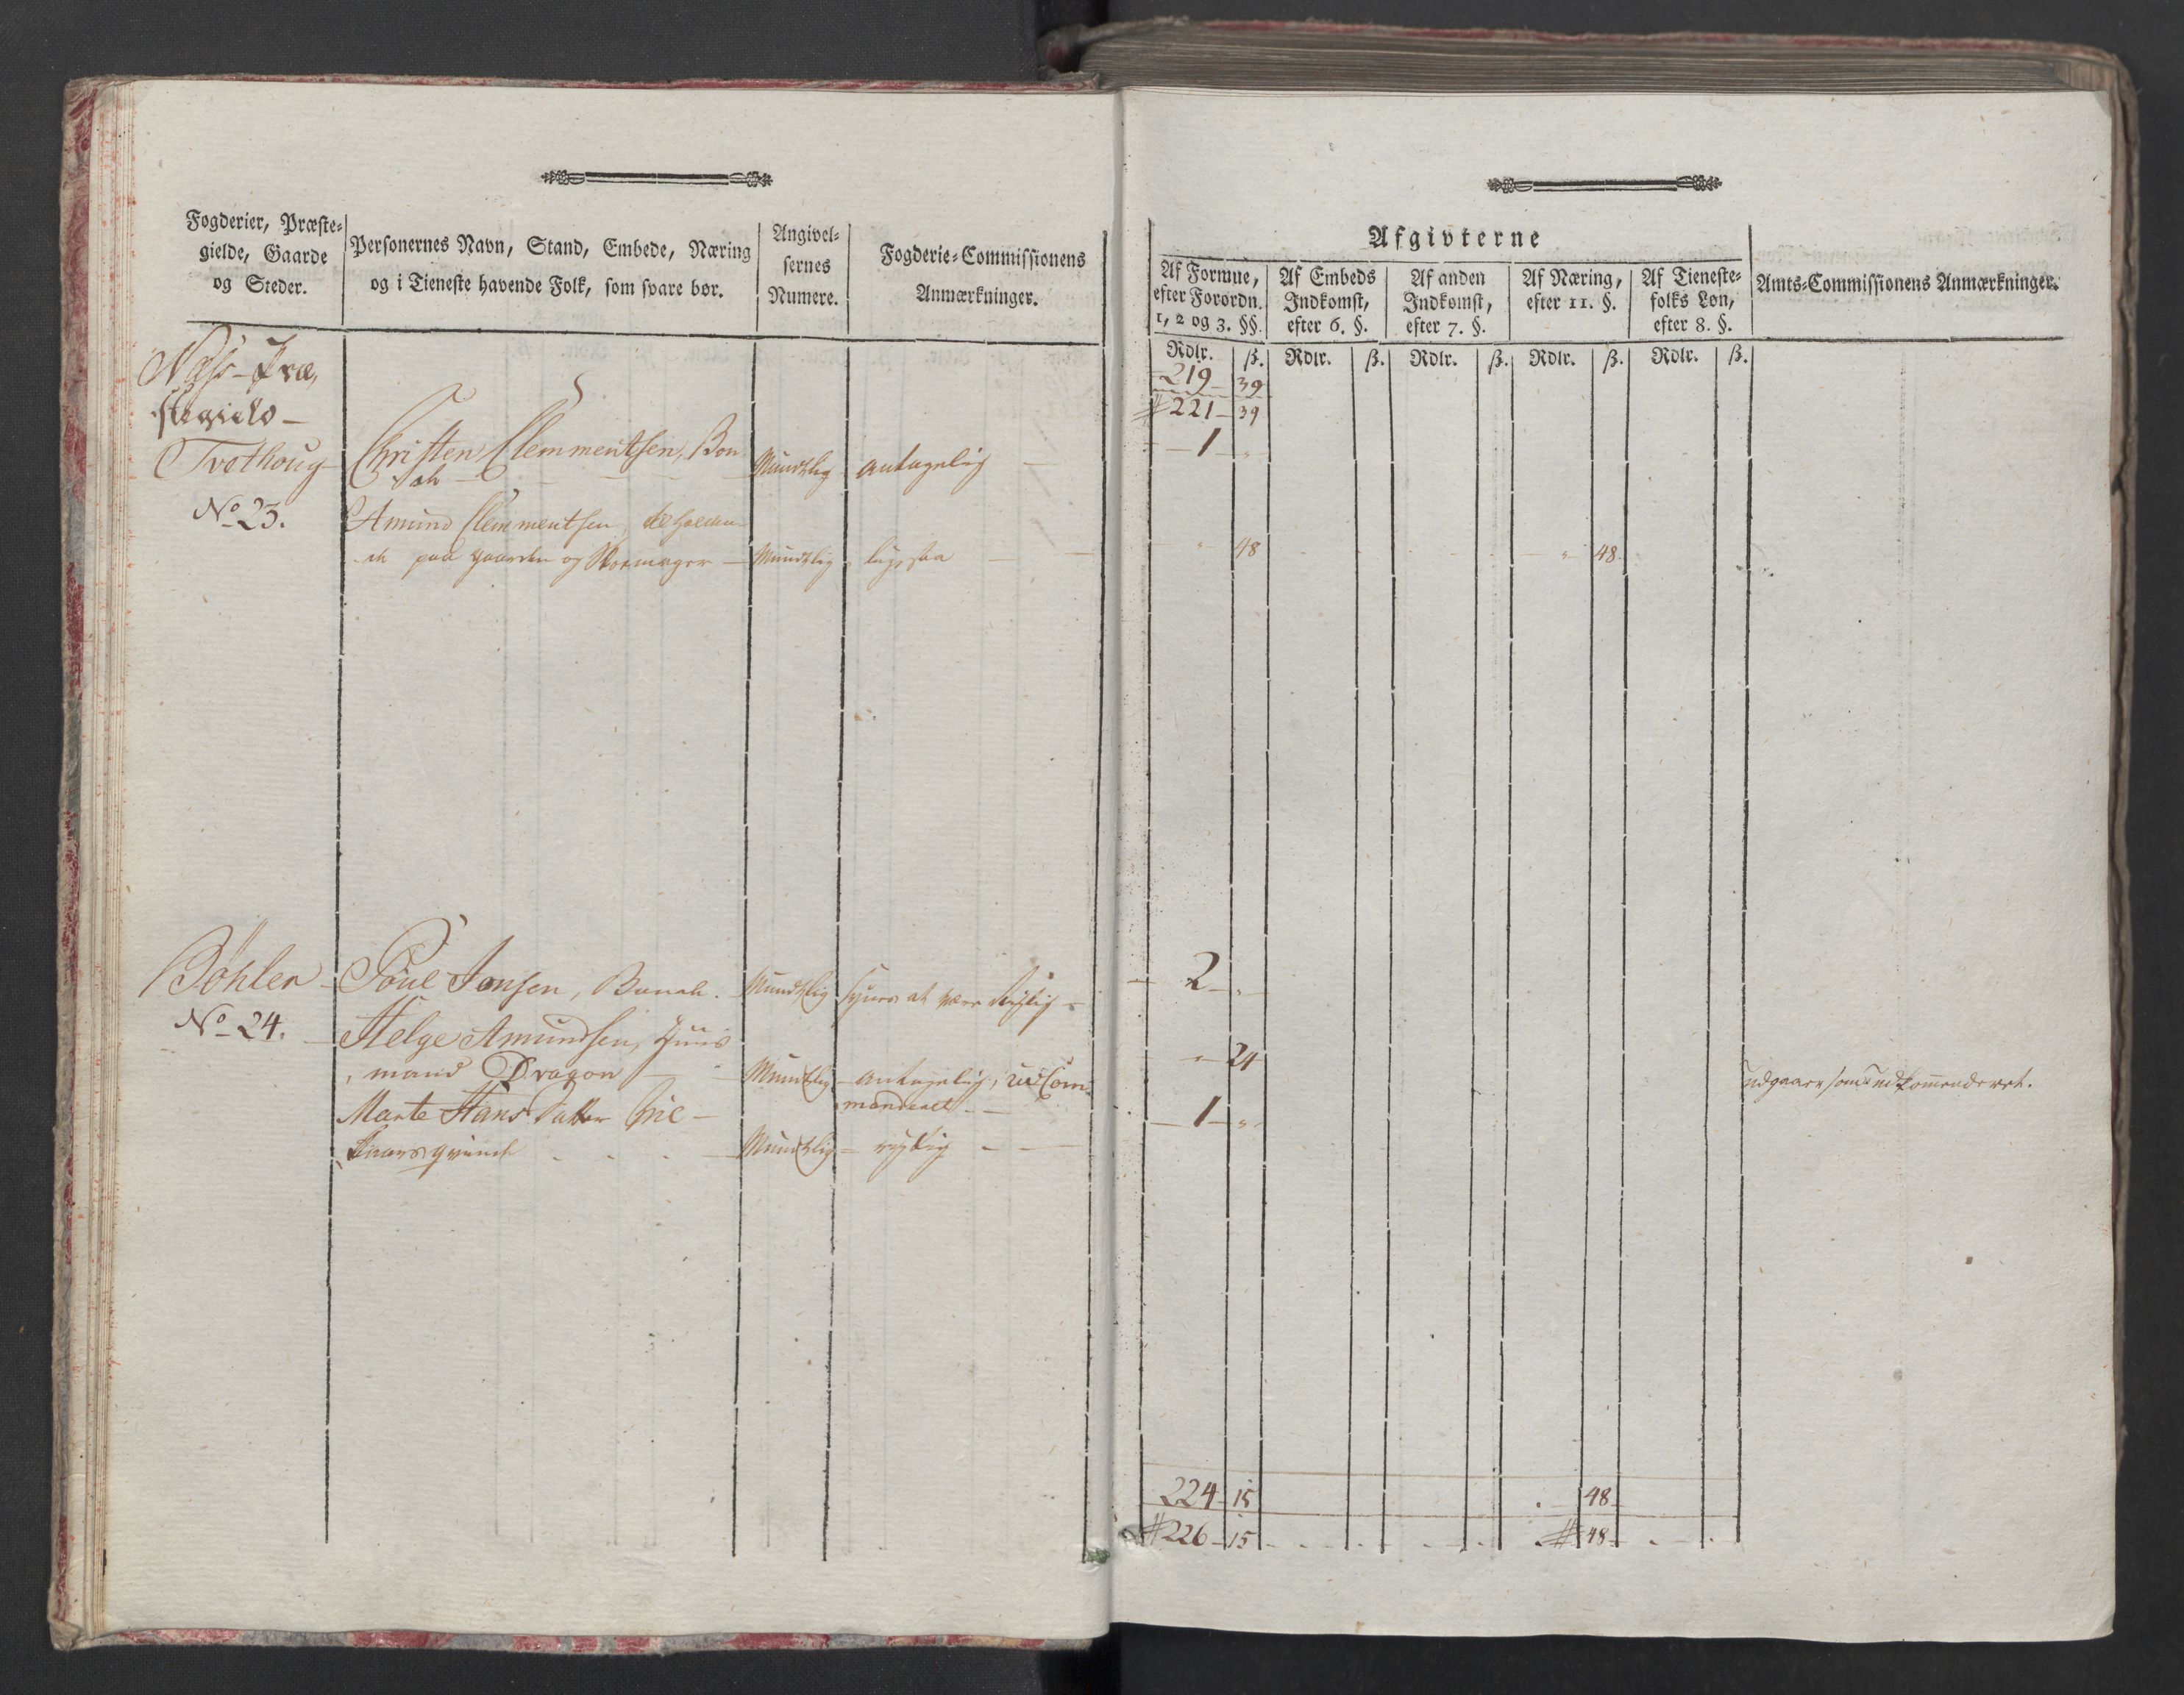 Fogderier, Præste-
gielde, Gaarde
og Steder.
Personernes Navn, Stand, Embede, Næring
og i Tieneste havende Folk, som svare bør.
Angivel-
sernes
Numere.
Fogderie-Commissionens
Anmærkninger.
Næss-Præ-
stegield
Tvethoug
No 23.
Christen Clemmentsen, Bon
de
Mundtlig
antagelig
Amund Clemmentsen
paa Gaarden og Skomager
Mundtlig
ligesaa
Böhler
No 24.
Poul Jonsen, Bonde.
Mundtlig
synes at være rigtig
Helge Amundsen, Huus
mand Dragon
Mundtlig
antagelig, ud Com-
manderet
Marte Hans Datter
Mundtlig
rigtig
Afgivterne
Af Formue,
efter Forordn.
1, 2 og 3. §§.
Af Embeds
Indkomst,
efter 6. §.
Af anden
Indkomst,
efter 7. §.
Af Næring,
efter 11. §.
Af Tieneste-
folks Løn,
efter 8. §.
Amts-Commissionens Anmærkninger.
Rdlr. ß. Rdlr. ß. Rdlr. ß. Rdlr. ß. Rdlr. ß.
219 39
# 221 39
1 "
" 48 " 48
2 "
" 24
Udgaaer som udkommenderet.
1 "
224 15 48
# 226 15 # 48